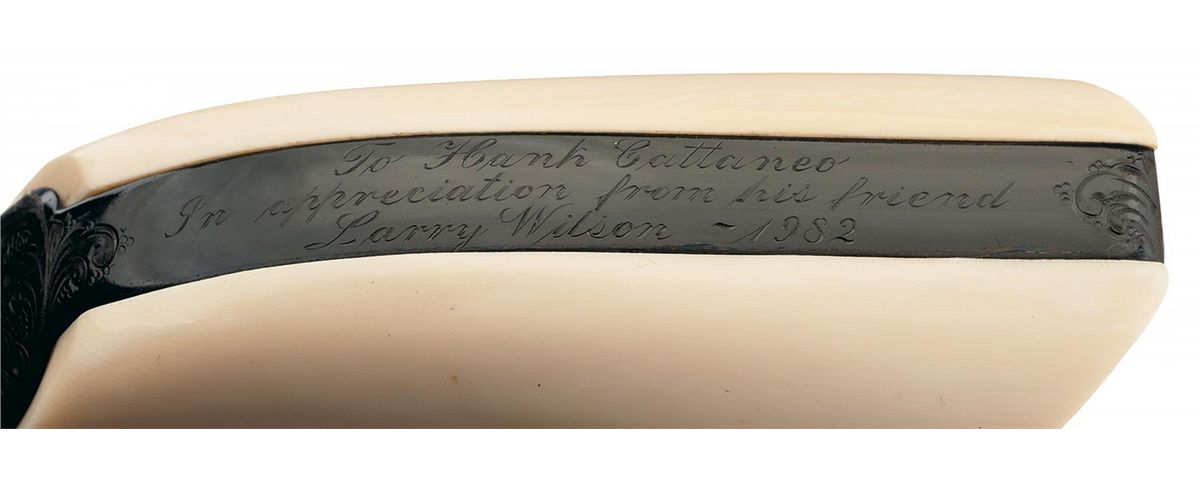 To Hank Cattaneo
In appreciation from his friend
Larry Wilson - 1982